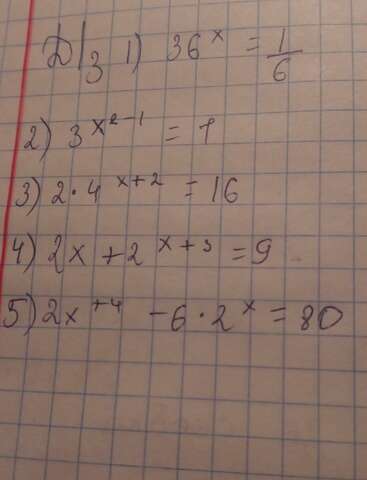 Д/з 1) 36^x = 1/6
2) 3^{x^2-1} = 1
3) 2 · 4^{x+2} = 16
4) 2x + 2^{x+3} = 9
5) 2x^{+4} - 6 · 2^x = 80